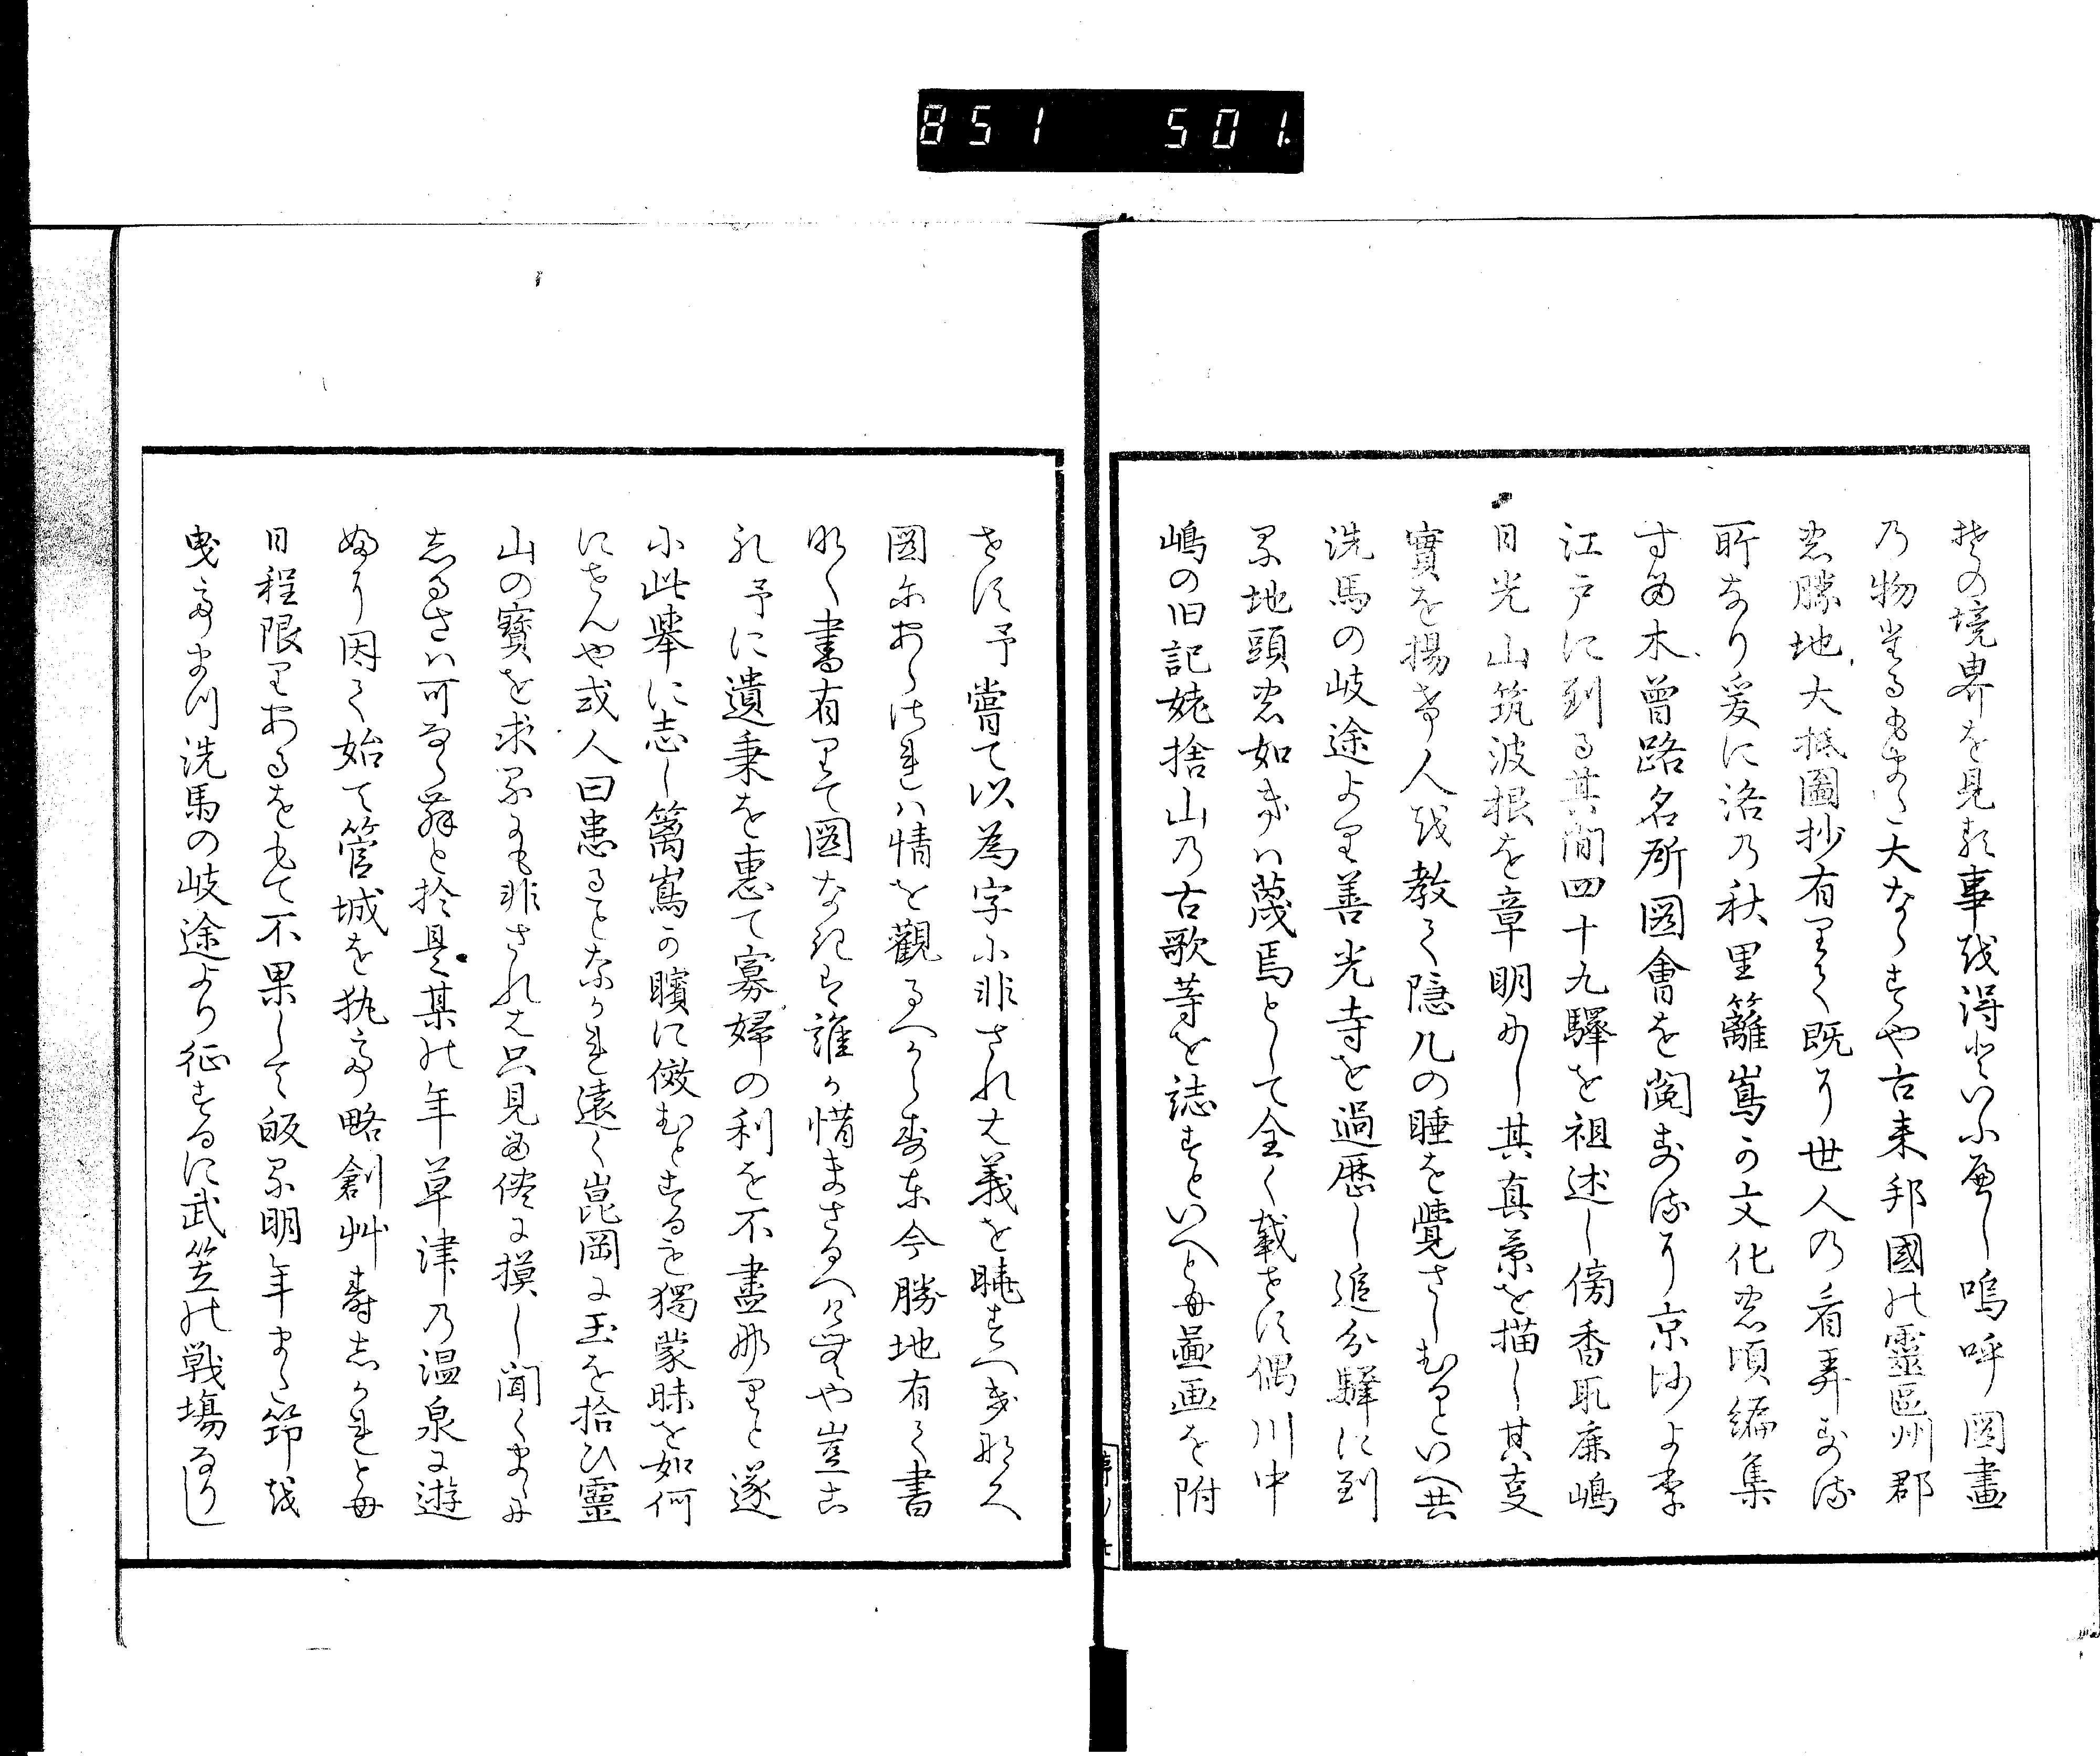 851 501.
其の境界を見る事越得といふべし嗚呼図畫
乃物たるもまた大ならすや古来邦國の靈區州郡
の勝地大抵圖抄有りて既に世人の看弄する
所なり爰に洛乃秋里籬嶌か文化の頃編集
する木曽路名所図會を閲するに京師より
江戸に到る其間四十九驛を祖述し傍香取鹿嶋
日光山筑波根を章明にし其真景を描し其事
實を揚け人越教て隠几の睡を覺さしむといへ共
洗馬の岐途より善光寺を過歴し追分驛に到
る地頭の如きハ蔑焉として全く載せす偶川中
嶋の旧記姥捨山乃古歌等を誌すといへとも畫画を附
せす予嘗て以為字に非されは義を曉すへき那く
図にあらされハ情を觀るへからす今勝地有て書
なく書有りて図なきは誰か惜まさるへけむや豈こ
れ予に遺秉を惠て寡婦の利を不盡那りと遂
に此擧に志し籬嶌の矉に傚むとするも獨蒙昧を如何
にせんや或人曰患ることなかれ遠く崑岡に玉を拾ひ靈
山の寶を求るにも非されは只見る侭に摸し聞くまゝに
しるさハ可ならむと於是某の年草津乃温泉に遊
ふり因て始て管城を執て略創艸すしかれとも
日程限りあるをもて不果して皈る明年また笻越
曳てまつ洗馬の岐途より征するに武笠の戦場なりし